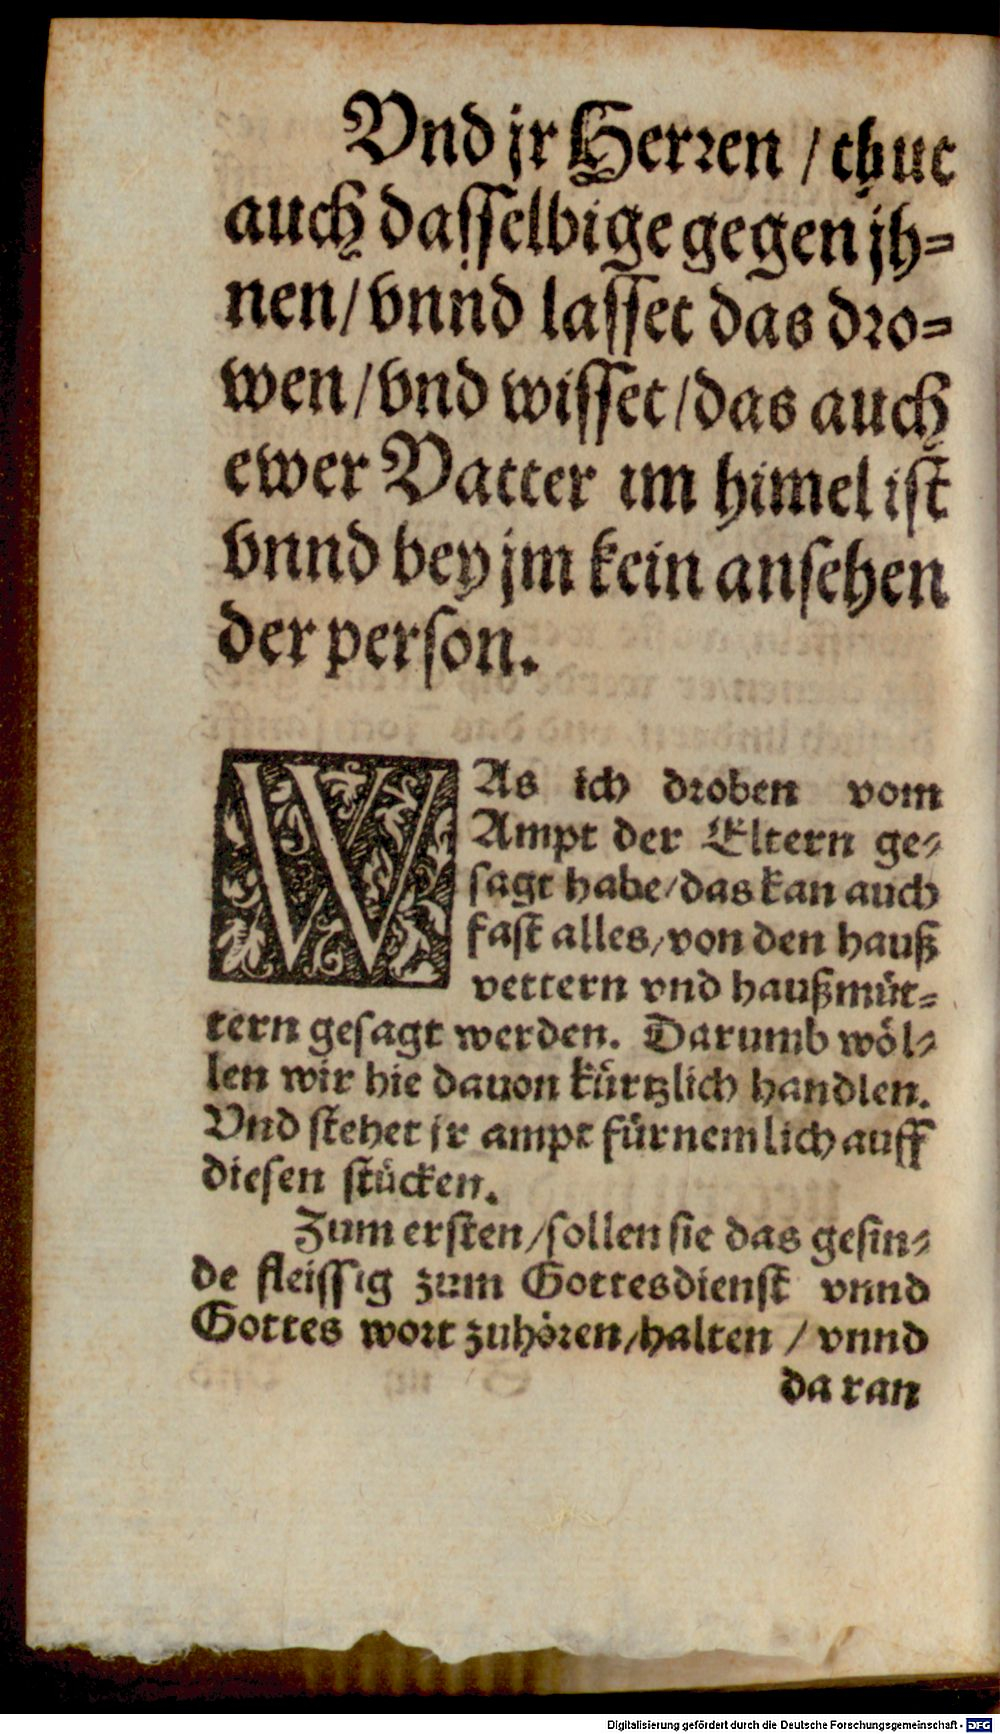 Vnd jr Herren / thut
auch dasselbige gegen jh=
nen / vnnd lasset das dro=
wen / vnd wisset / das auch
ewer Vatter im himel ist
vnnd bey jm kein ansehen
der person.
WAs ich droben vom
Ampt der Eltern ge=
sagt habe / das kan auch
fast alles / von den hauß
vettern vnd haußmüt=
tern gesagt werden. Darumb wöl=
len wir hie dauon kürtzlich handlen.
Vnd stehet jr ampt fürnemlich auff
diesen stücken.
Zum ersten / sollen sie das gesin=
de fleissig zum Gottesdienst vnnd
Gottes wort zuhören / halten / vnnd
daran
Digitalisierung gefördert durch die Deutsche Forschungsgemeinschaft - DFG